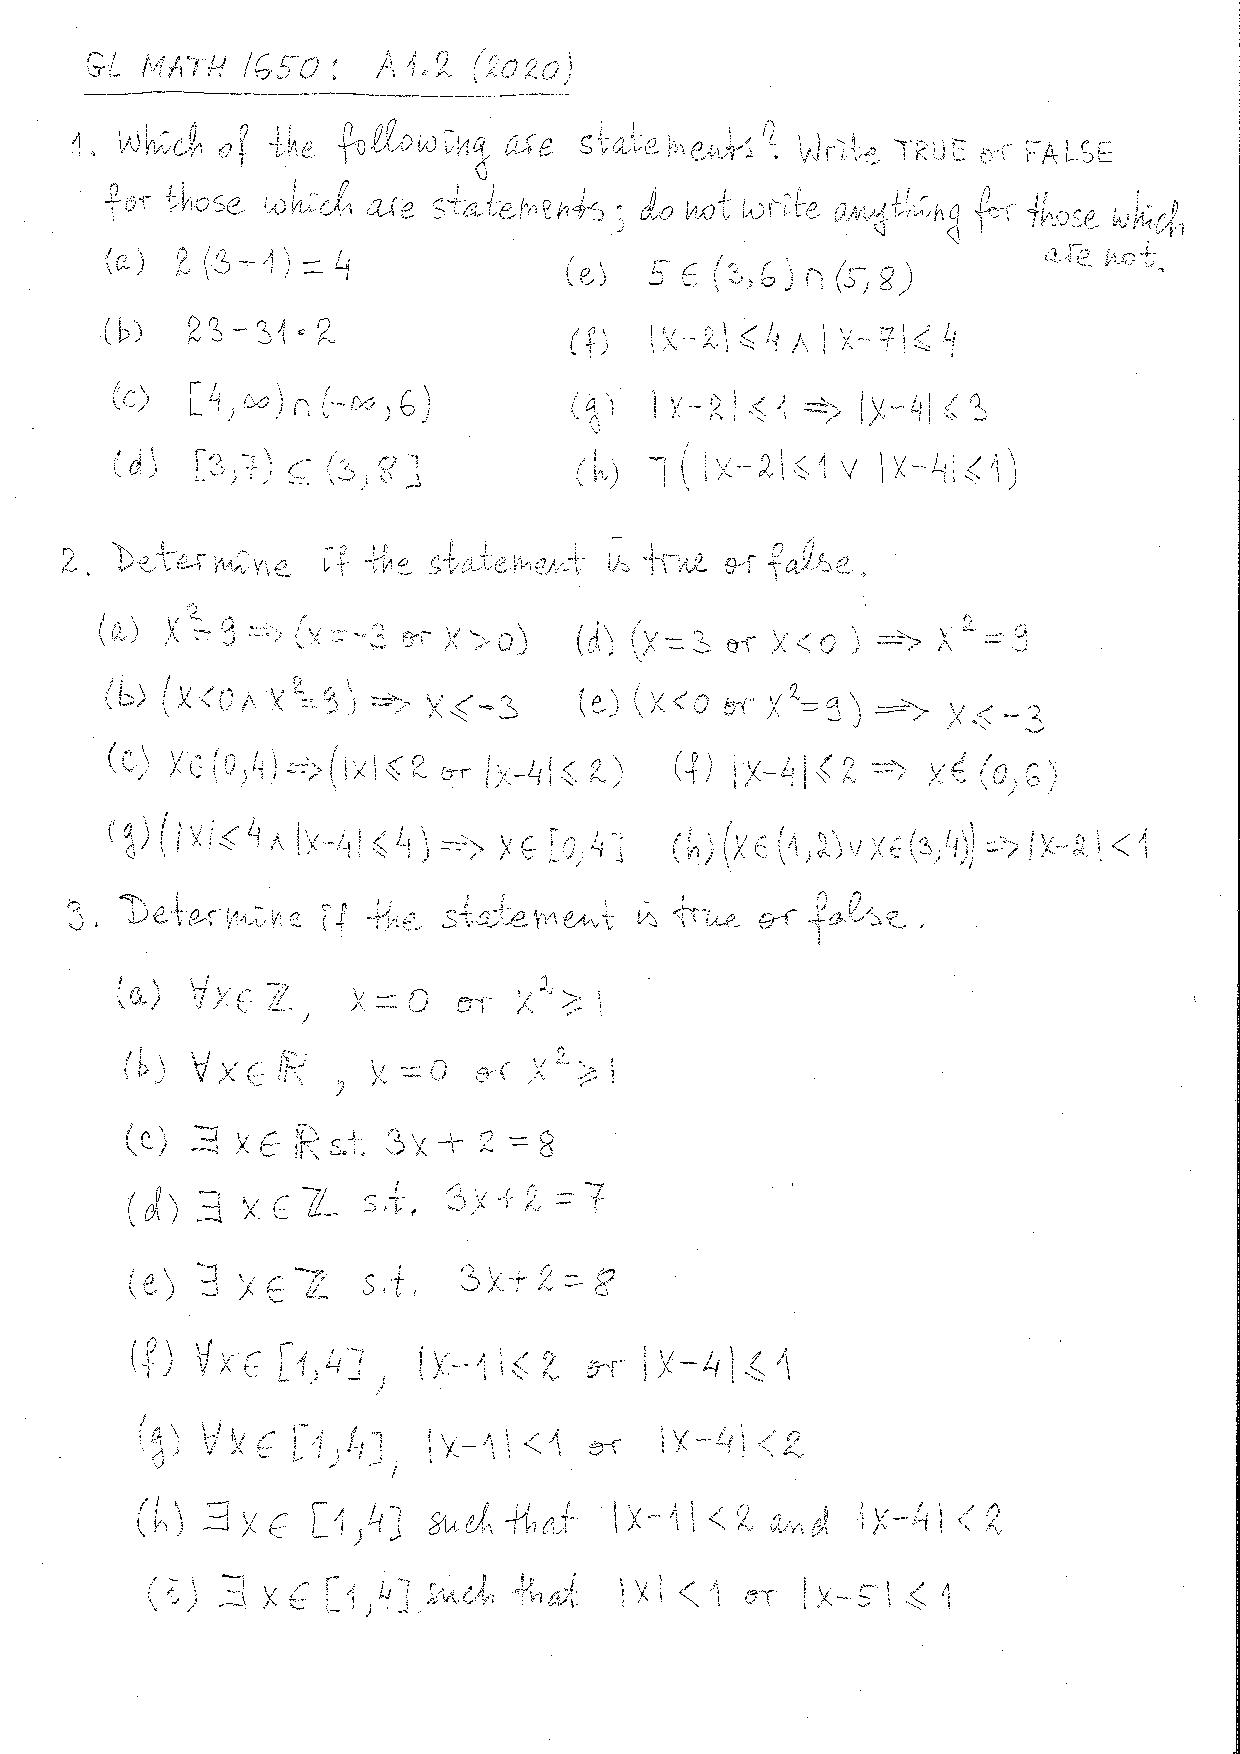 GL MATH 1650: A1.2 (2020)
1. Which of the following are statements? Write TRUE or FALSE
for those which are statements; do not write anything for those which
are not.
(a) 2(3-1)=4
(e) 5 ∈ (3,6) ∩ (5,8)
(b) 23-31•2
(f) |x-2|⩽4 ∧ |x-7|⩽4
(c) [4,∞) ∩ (-∞,6)
(g) |x-2|⩽1 ⇒ |x-4|⩽3
(d) [3,7) ⊆ (3,8]
(h) ¬(|x-2|⩽1 ∨ |x-4|⩽1)
2. Determine if the statement is true or false.
(a) x²=9 ⇒ (x=-3 or x>0) (d) (x=3 or x<0) ⇒ x²=9
(b) (x<0 ∧ x²=9) ⇒ x⩽-3 (e) (x<0 or x²=9) ⇒ x⩽-3
(c) x∈(0,4) ⇒ (|x|⩽2 or |x-4|⩽2) (f) |x-4|⩽2 ⇒ x∈(0,6)
(g) (|x|⩽4 ∧ |x-4|⩽4) ⇒ x∈[0,4] (h) (x∈(1,2) ∨ x∈(3,4)) ⇒ |x-2|<1
3. Determine if the statement is true or false.
(a) ∀x∈ℤ, x=0 or x²⩾1
(b) ∀x∈ℝ, x=0 or x²⩾1
(c) ∃x∈ℝ s.t. 3x+2=8
(d) ∃x∈ℤ s.t. 3x+2=7
(e) ∃x∈ℤ s.t. 3x+2=8
(f) ∀x∈[1,4], |x-1|⩽2 or |x-4|⩽1
(g) ∀x∈[1,4], |x-1|<1 or |x-4|<2
(h) ∃x∈[1,4] such that |x-1|<2 and |x-4|<2
(i) ∃x∈[1,4] such that |x|<1 or |x-5|⩽1